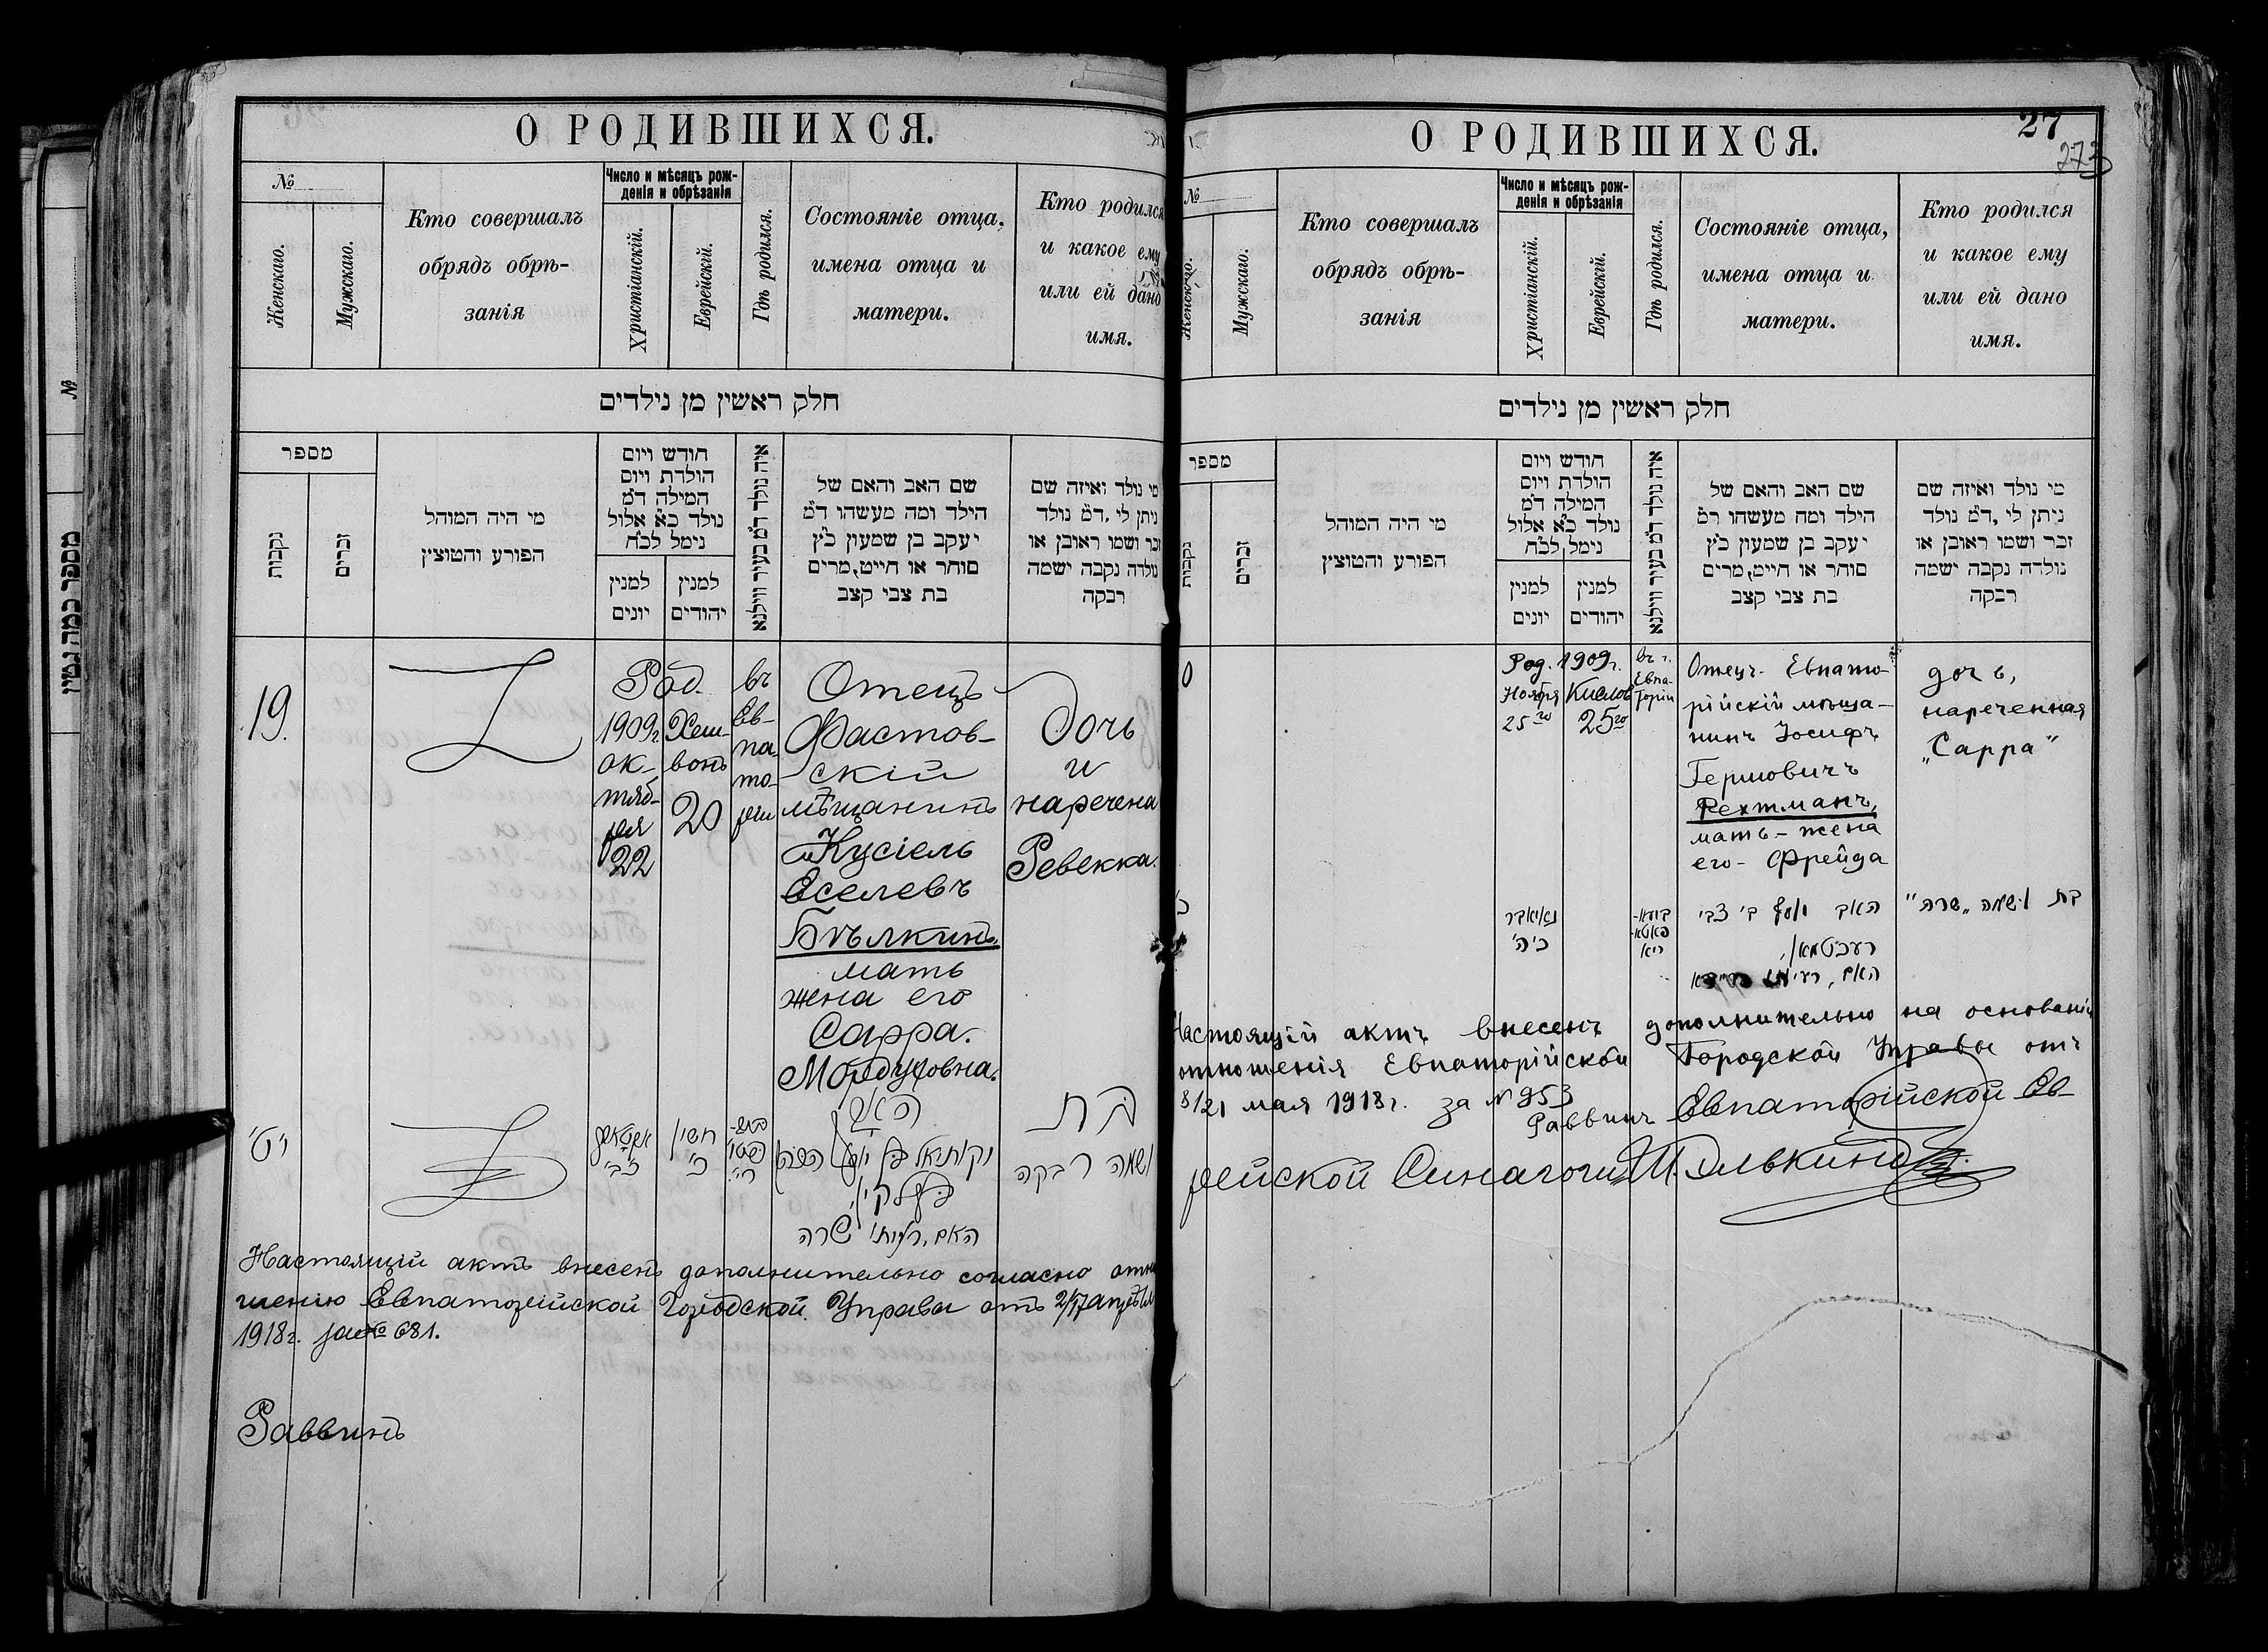 О РОДИВШИХСЯ.
№
Женскаго.
Мужскаго.
Кто совершалъ
обрядъ обрѣ-
занія
Число и мѣсяцъ рож-
денія и обрѣзанія
Христіанскій.
Еврейскій.
Гдѣ родился.
Состояніе отца,
имена отца и
матери.
Кто родился
и какое ему
или ей дано
имя.
חלק ראשין מן נילדים
מספר
נקבות
זכרים
מי היה המוהל
הפורע והטוצין
חודש ויום
הולדת ויום
המילה ד״מ
נולד כ״א אלול
נימל לכ״ח
למנין
יונים
למנין
יהודים
איה נולד ד״מ בעיר ווילנא
שם האב והאם של
הילד ומה מעשהו ד״מ
יעקב בן שמעון כ״ץ
סוחר או חייט, מרים
בת צבי קצב
מי נולד ואיזה שם
ניתן לי, ד״מ נולד
זכר ושמו ראובן או
נולדה נקבה ישמה
רבקה
19.
Род.
1909г.
ок-
тяб-
ря
22
Хеш-
вонъ
20
въ
Ев-
па-
то-
ріи
Отецъ
Фастов-
скій
мѣщанинъ
Кусіель
Еселевъ
Бѣлкинъ,
мать
жена его
Сарра.
Мордуховна.
Дочь
и
наречена
Ревекка.
י״ט
אקטאבער
כ״ב
חשון
כ׳
האב
האם, רעיתו שרה
בת
ושמה רבקה
Настоящій актъ внесенъ дополнительно согласно отно
шенію Евпаторійской Городской Управы отъ 2/17 апрѣля
1918г. за № 681.
Раввинъ
О РОДИВШИХСЯ.
27
273
№
Женскаго.
Мужскаго.
Кто совершалъ
обрядъ обрѣ-
занія
Число и мѣсяцъ рож-
денія и обрѣзанія
Христіанскій.
Еврейскій.
Гдѣ родился.
Состояніе отца,
имена отца и
матери.
Кто родился
и какое ему
или ей дано
имя.
חלק ראשין מן נילדים
מספר
נקבות
זכרים
מי היה המוהל
הפורע והטוצין
חודש ויום
הולדת ויום
המילה ד״מ
נולד כ״א אלול
נימל לכ״ח
למנין
יונים
למנין
יהודים
איה נולד ד״מ בעיר ווילנא
שם האב והאם של
הילד ומה מעשהו ד״מ
יעקב בן שמעון כ״ץ
סוחר או חייט, מרים
בת צבי קצב
מי נולד ואיזה שם
ניתן לי, ד״מ נולד
זכר ושמו ראובן או
נולדה נקבה ישמה
רבקה
0
Род. 1909г.
Ноября
25го
Кислов
25го
въ г.
Евпа-
торіи
Отецъ Евпато-
рійскій мѣща-
нинъ Іосифъ
Гершовичъ
Рехтманъ,
мать – жена
его – Фрейда
дочь,
нареченная
„Сарра“
נאיאבר
כ״ה
האב יוסף ב׳ צבי
רעכטמאן,
בת ושמה „שרה“
Настоящій актъ внесенъ дополнительно на основаніи
отношенія Евпаторійской Городской Управы отъ
8/21 мая 1918г. за № 953
Раввинъ Евпаторійской Ев-
рейской Синагоги Ш. Элькинд